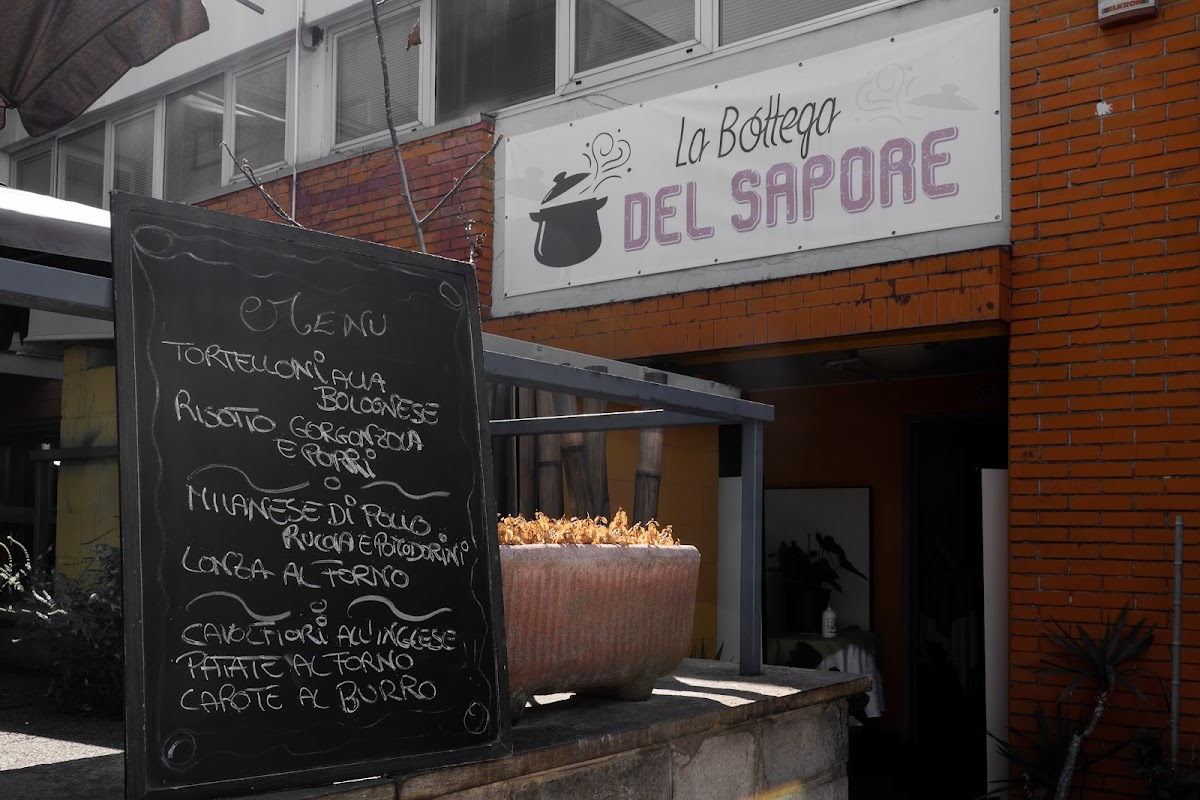 ELKRON
La Bottega
DEL SAPORE
MENU
TORTELLONI ALLA
BOLOGNESE
RISOTTO GORGONZOLA
E PORRI
MILANESE DI POLLO
RUCOLA E POMODORINI
LONZA AL FORNO
CAVOLFIORI ALL'INGLESE
PATATE AL FORNO
CAROTE AL BURRO